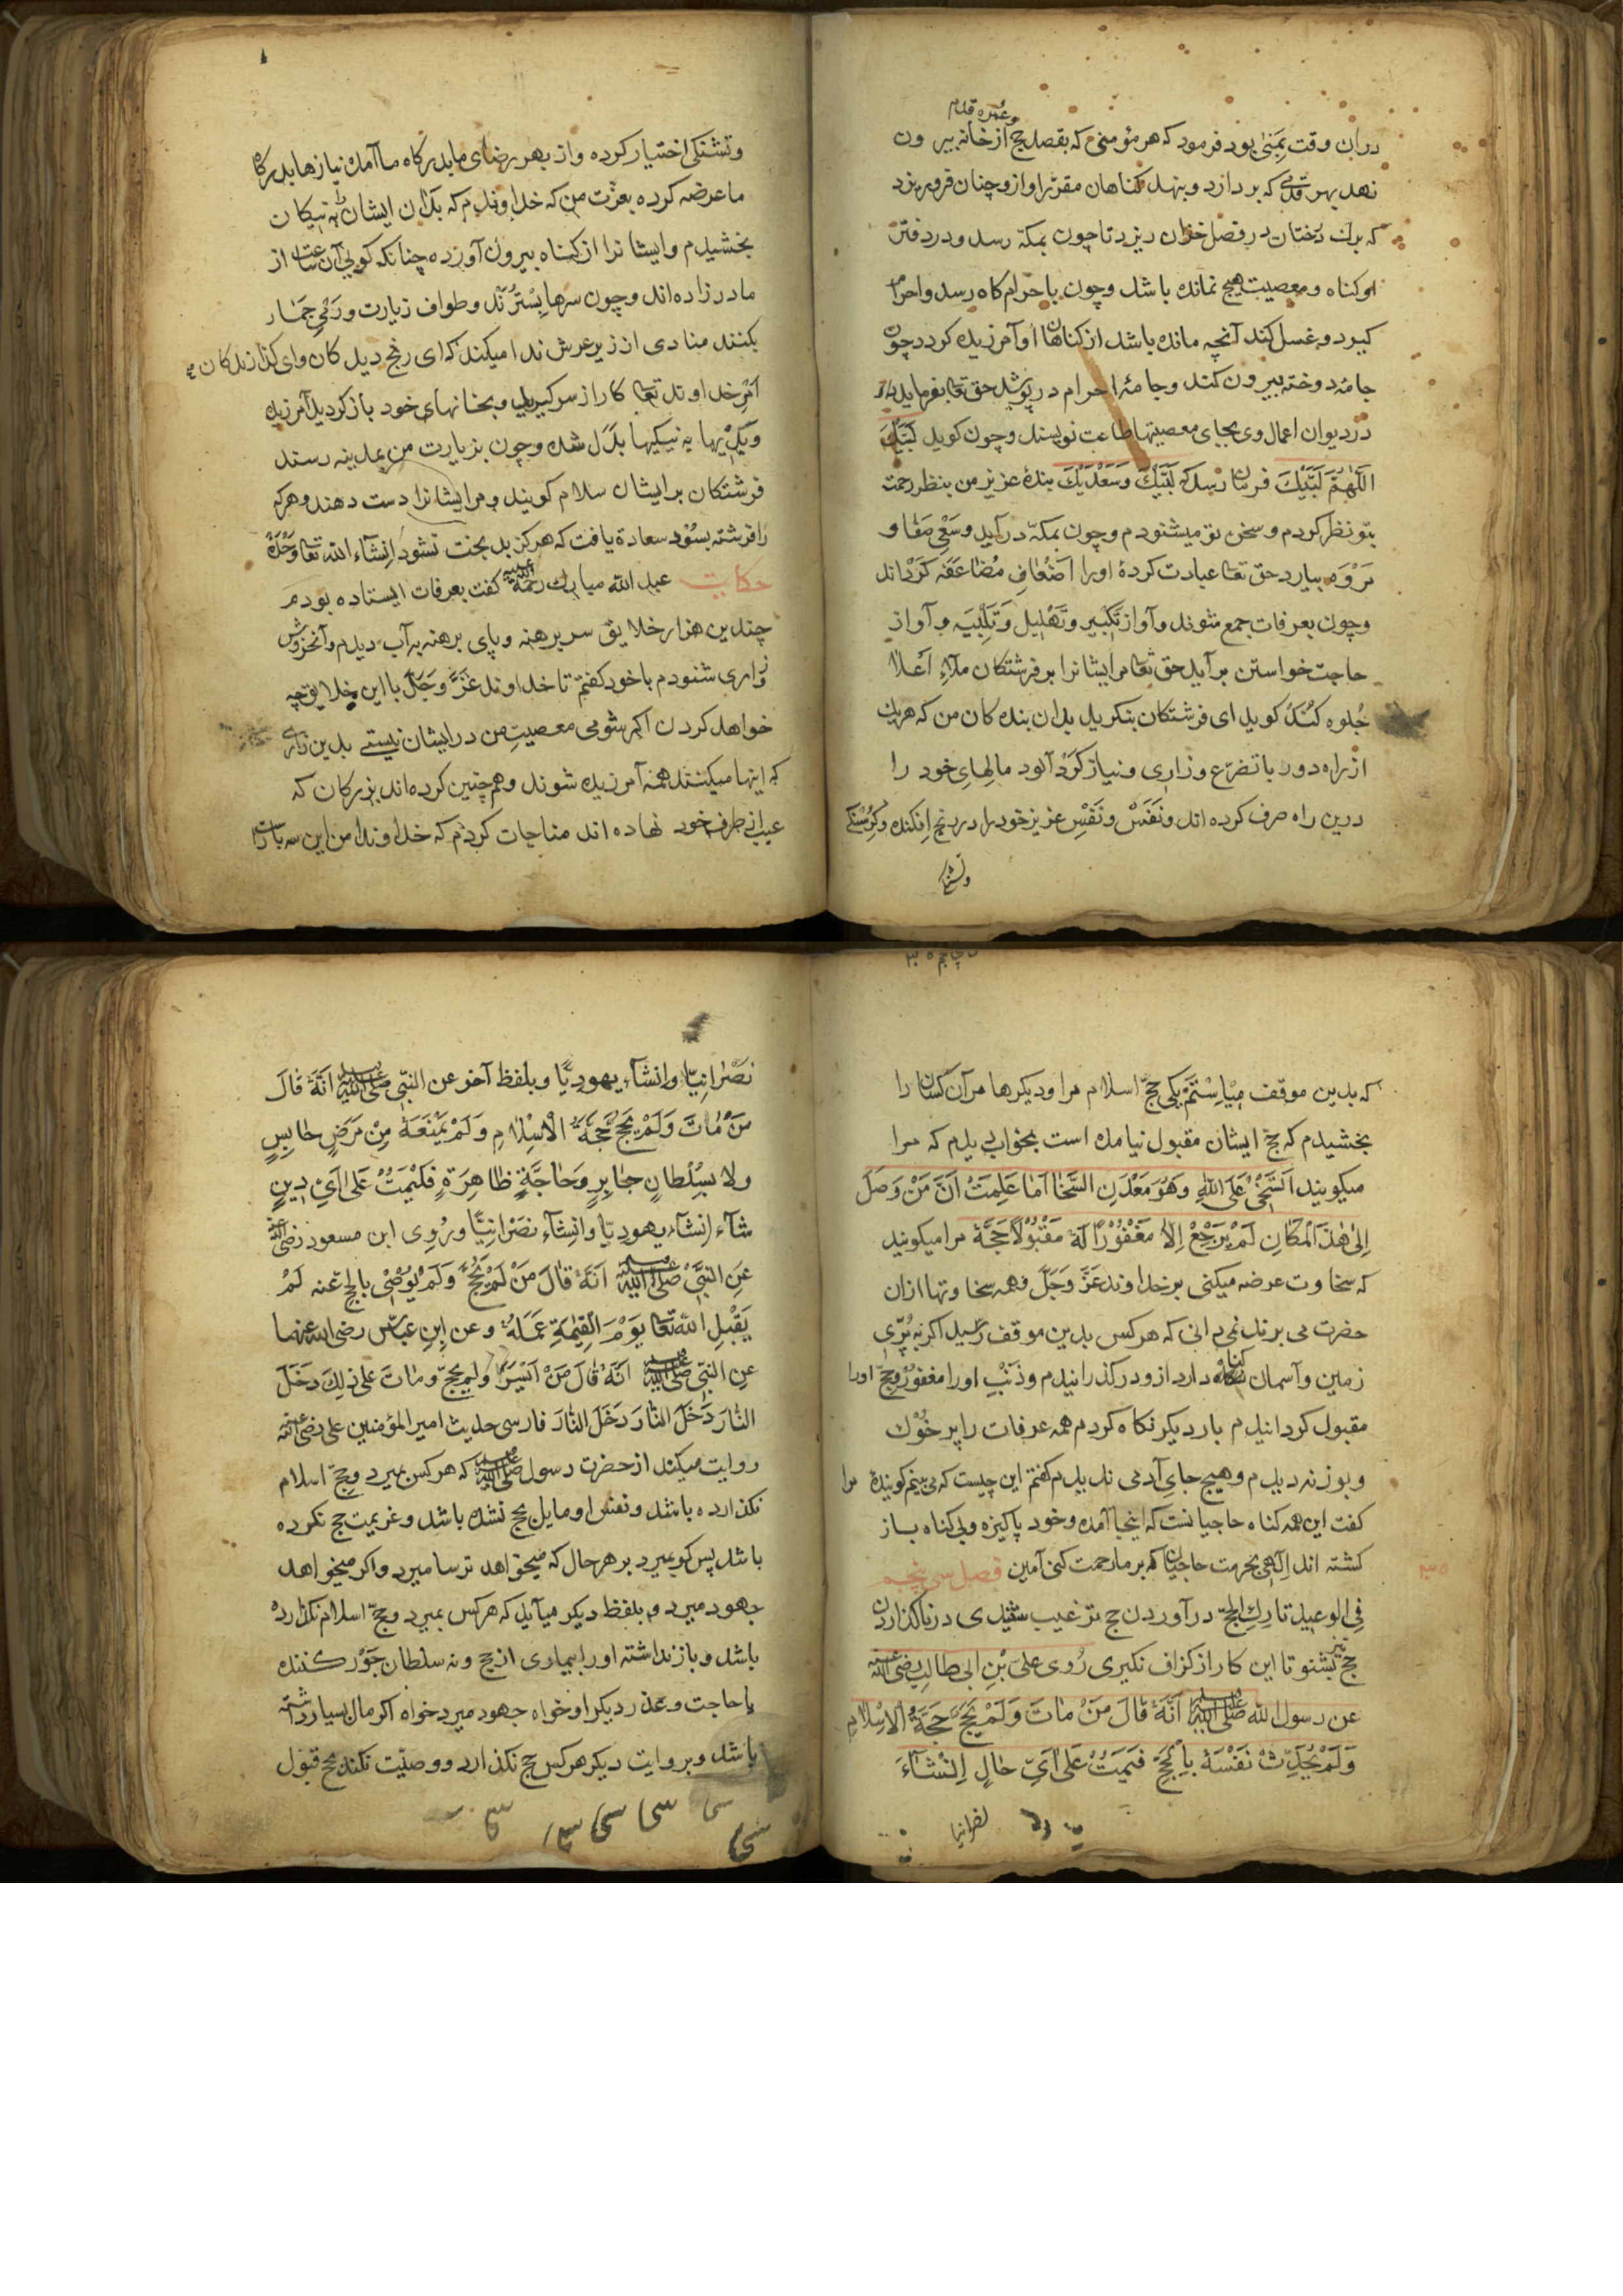 و عمره قدم
دران وقت بمنی بود فرمود که هر مؤمنی که بقصد حج از خانه بیرون
نهد بهر قدمی که بردارد و بنهد کناهان مقرّ او ازو چنان فرو ریزد
که برك درختان در فصل خزان ریزد تا چون بمکّه رسد و در دفتر
او کناه و معصیت هیچ نمانده باشد و چون باحرام کاه رسد و احرام
کیرد و غسل کند آنچه مانده باشد از کناهان او آمرزیده کردد چون
جامهٔ دوخته بیرون کند و جامهٔ احرام در پوشد حق تعالی بفرماید تا
در دیوان اعمال وی بجای معصیتها طاعت نویسند و چون کوید لَبَّیْكَ
اللّٰهُمَّ لَبَّیْكَ فرمان رسد که لَبَّیْكَ وَسَعْدَیْكَ بندهٔ عزیز من بنظر رحمت
بتو نظر کردم و سخن تو میشنودم و چون بمکّه درآید و سَعْیِ صَفٰا و
مَرْوَه بیارد حق تعالی عبادت کردهٔ او را اَضْعٰافِ مُضٰاعَفَه کَرْدٰاند
و چون بعرفات جمع شوند و آواز تَکْبِیر و تَهْلِیل وَ تَلْبِیَه و آواز
حاجت خواستن برآید حق تعالی مر ایشانرا بر فرشتکان مَلَاءِ اَعْلٰا
جُلوه کُنَدْ کوید ای فرشتکان بنکرید بدان بنده کان من که هر یك
از راه دور با تضرّع و زاری و نیاز کَرْد آلود مالهاءِ خود را
درین راه صرف کرده اند و نَفَسْ و نَفْسِ عزیز خود را در رنج افکنده و کُرُسْنَکی
و تشنکی
و تشنکی اختیار کرده و از بهر رضای ما بدرکاه ما آمده نیازها بدرکاه
ما عرضه کرده بعزّت من که خداوندم که بدان ایشان را به نیکان
بخشیدم و ایشانرا از کناه بیرون آورده چنانکه کویی آن ساعت از
مادر زاده اند و چون سرها بِسْتُرَنْد و طواف زیارت و رَمْیِ جَمٰار
بکنند منادی از زیر عرش ندا میکند که ای رنج دیده کان و ای کذارندکان
اَمْرِ خداوند تعالی کار از سر کیرید و بخانهای خود باز کردید آمرزیده
و بَدْیها به نیکیها بَدَل شده و چون بزیارت من بمدینه رسند
فرشتکان بر ایشان سلام کویند و مر ایشانرا دست دهند و هر که
را فرشته بسُود سعادة یافت که هرکز بدبخت نشود اِنشَآء اللّه تعالی وَحْدَهُ
حکایت عبد اللّه مبارك رحمة اللّه علیه کفت بعرفات ایستاده بودم
چندین هزار خلایق سر برهنه و پای برهنه پر آب دیدم و آن خروش
و زاری شنودم با خود کفتم تا خداوند عَزَّ وَجَلَّ با این خلایق چه
خواهد کردن اکر شومی معصیتِ من در ایشان نیستی بدین زاری
که اینها میکنند همه آمرزیده شوند و همچنین کرده اند بزرکان که
عیب از طرف خود نهاده اند مناجات کردم که خداوندا من این سه بار
که بدین موقف می‌ایسْتَمْ یکی حجّ اسلام مرا و دیکرها مر آن کسان را
بخشیدم که حجّ ایشان مقبول نیامده است بخواب دیدم که مرا
میکویند اَتَسَخّٰی عَلَی اللّٰهِ وَهُوَ مَعْدَنِ السَّخٰا اَمٰا عَلِمَتْ اَنَّ مَنْ وَصَلَ
اِلیٰ هٰذَ الْمَکٰانِ لَمْ یَرْجَعْ اِلاّٰ مَغْفُوْرًا لَهٗ مَقْبُوْلًا حَجَّهٗ مرا میکویند
که سخاوت عرضه میکنی بر خداوند عَزَّ وَجَلَّ و همه سخاوتها ازان
حضرت می برند نمیدانی که هر کس بدین موقف رسید اکر به پُرّی
زمین و آسمان کناه دارد ازو در کذرانیدم و ذَنْبِ او را مغفور و حجّ او را
مقبول کردانیدم بار دیکر نکاه کردم همه عرفات را پر خُوْك
و بوزنه دیدم و هیچ جایِ آدمی ندیدم کفتم این چیست که می بینم کویندهٔ مرا
کفت این همه کناه حاجیانست که اینجا آمده و خود پاکیزه و بی کناه باز
کشته اند اِلٰهی بحرمت حاجیان که بر ما رحمت کنی آمین فصل سی پنجم
۳۵
فِی الوعیدِ تارِكِ الحَجّ در آوردن حج ترغیب شنیدی در ناکذاردن
حج نیز بشنو تا این کار از کزاف نکیری رُوِی علیّ بْنِ ابی طالب رضی اللّه عنه
عن رسول اللّه صلی اللّه علیه وسلم اَنَّهٗ قٰالَ مَنْ مٰاتَ وَلَمْ یَحُجَّ حَجَّةُ الْاِسْلٰامِ
وَلَمْ یُحَدِّثْ نَفْسَهٗ بِالْحَجِّ فَیَمَتْ عَلیٰ اَیِّ حٰالٍ اِنْشَآءَ
نصرانیا
نَصْرٰانِیّاً وانشَآء یهودیًّا و بلفظ آخر عن النبّی صلی اللّه علیه وسلم اَنَّهٗ قٰالَ
مَنْ مٰاتَ وَلَمْ یَحُجَّ حَجَّةَ الْاِسْلٰامِ وَلَمْ یَمْنَعَهٗ مِنْ مَرَضٍ حٰابِسٍ
ولا سُلْطانٍ جٰابِرٍ وَحٰاجَّةٍ ظٰاهِرَةٍ فَلْیَمَتْ عَلیٰ اَیِّ دِینٍ
شآء اِنشآء یهودیّا وانِشآء نصَرٰانِیًّا و رُوِی ابن مسعود رضی اللّه عنه
عَنِ النبَّیْ صلی اللّه علیه وسلم اَنَّهٗ قٰالَ مَنْ لَمْ یَحُجَّ وَلَمْ یُوْصٰی بالحج عنه لَمْ
یَقْبَلِ اللّه تعالی یَوْمَ الْقِیٰمَةِ عَمَلَهٗ و عن اِبنِ عبّاس رضی اللّه عنهما
عنِ النبّی صلی اللّه علیه وسلم اَنَّهٗ قٰالَ مَنْ اَیْسَرَ ولم یحجّ و مٰاتَ علیٰ ذٰلِكَ دَخَلَ
النّٰارَ دَخَلَ النّٰارَ دَخَلَ النّٰارَ فارسی حدیث امیر المؤمنین علی رضی اللّه عنه
روایت میکند از حضرت رسول صلی اللّه علیه وسلم که هر کس بمیرد و حجّ اسلام
نکذارده باشد و نفس او مایل حج نشده باشد و عزیمت حج نکرده
باشد پس کو بمیرد بر هر حال که میخواهد ترسا میرد و اکر میخواهد
جهود میرد و بلفظ دیکر میآید که هر کس بمیرد و حجّ اسلام نکذارده
باشد و باز نداشته او را بیماری از حج و نه سلطان جَوْر کننده
یا حاجت و عذر دیکر او خواه جهود میرد خواه اکر مال بسیار داشته
باشد و بروایت دیکر هر کس حج نکذارد و وصیّت نکند بحج قبول